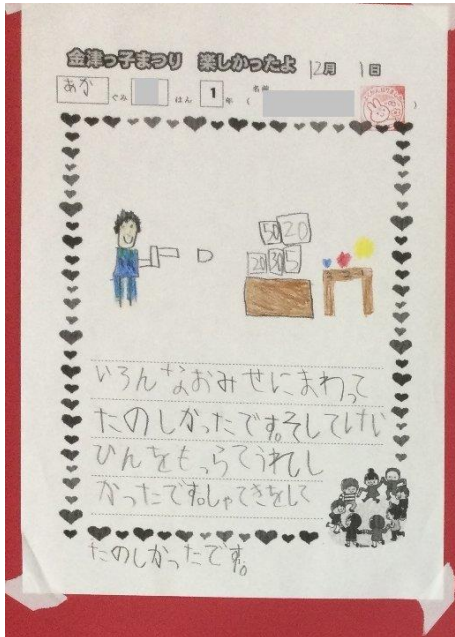 金津っ子まつり 楽しかったよ 12月 1日
あか ぐみ はん 1年 ( 名前 )
50 20
20 30 5
いろんなおみせにまわって
たのしかったです。そしてけい
ひんをもっらてうれし
かったです。しゃてきをして
たのしかったです。